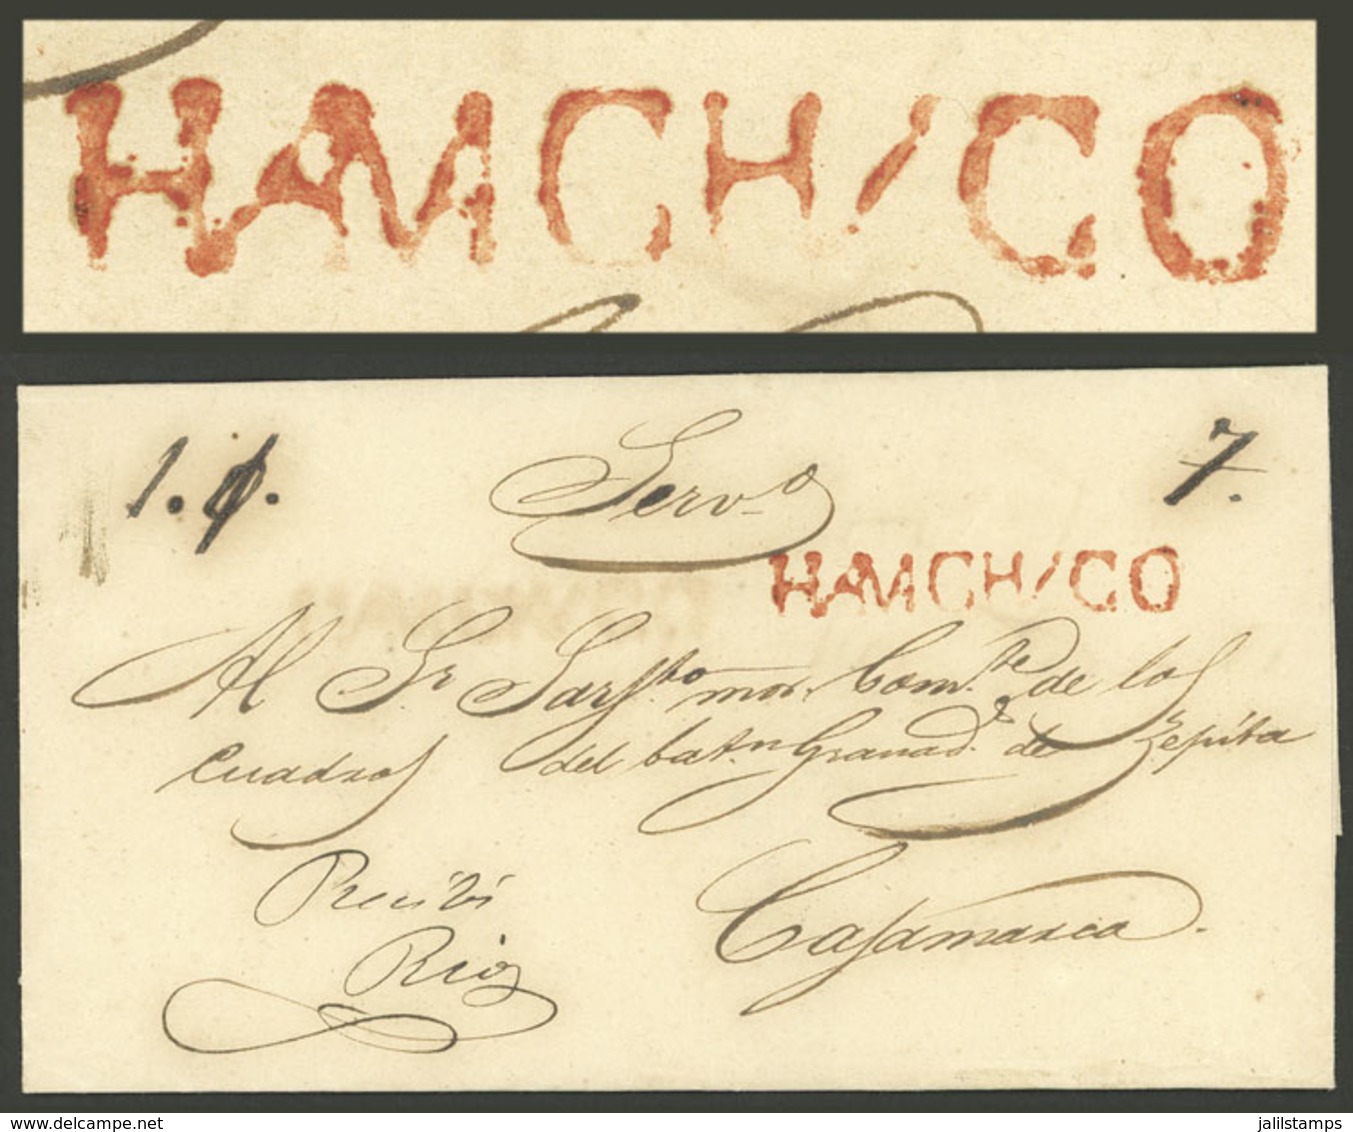 HAMCHICO
1. 7.
Serv.o
HAMCHICO
Al Sr Sarg.to mor. Com.te de los
cuadros del bat.n Granad.s de Zepita
Recibi
Rios
Cajamarca.
www.delcampe.net
jalilstamps